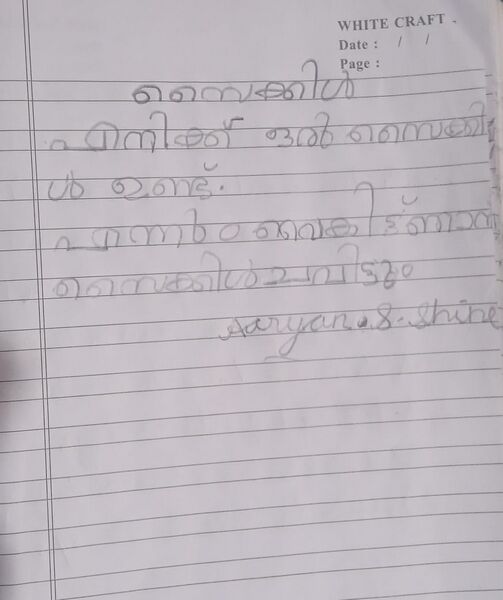 WHITE CRAFT
Date : / /
Page :
സൈക്കിൾ
എനിക്ക് ഒരു സൈക്കി
ൾ ഉണ്ട്.
എന്നും വൈകിട്ട് ഞാൻ
സൈക്കിൾ ചവിട്ടും
Aaryan.S.Shine